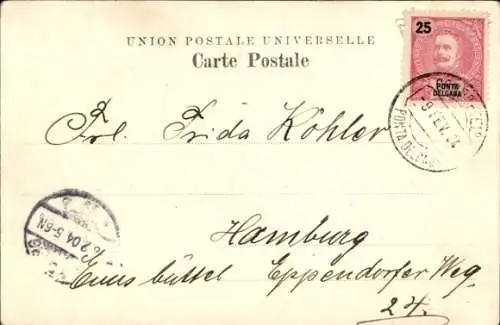 UNION POSTALE UNIVERSELLE
Carte Postale
25
PONTA
DELGADA
9 FEV. 04
PONTA DELGADA
Frl. Frida Köhler
2 04 5-6N
Hamburg
Eimsbüttel Eppendorfer Weg
24.